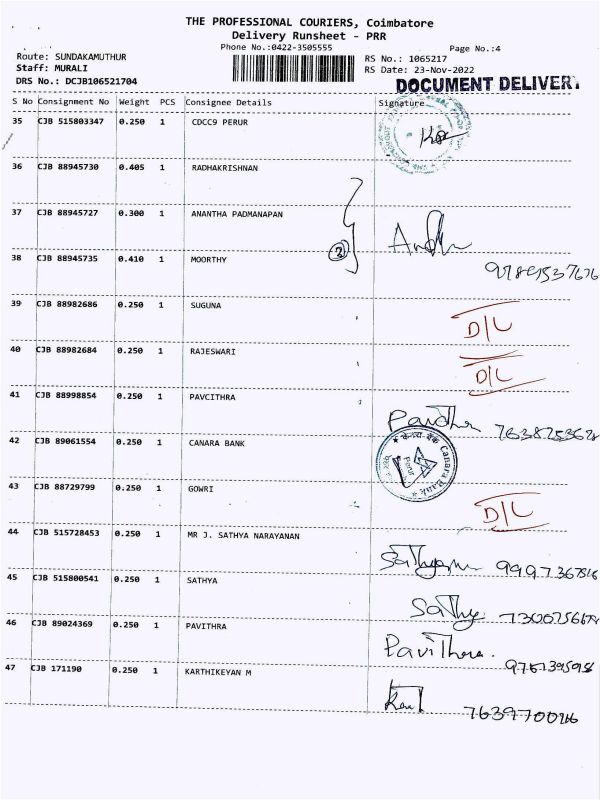 THE PROFESSIONAL COURIERS, Coimbatore
Delivery Runsheet - PRR
Phone No.:0422-3505555
Page No.:4
Route: SUNDAKAMUTHUR
RS No.: 1065217
Staff: MURALI
RS Date: 23-Nov-2022
DRS No.: DCJB106521704
DOCUMENT DELIVERY
S No Consignment No Weight PCS Consignee Details Signature
35 CJB 515803347 0.250 1 CDCC9 PERUR
36 CJB 88945730 0.405 1 RADHAKRISHNAN
37 CJB 88945727 0.300 1 ANANTHA PADMANAPAN
38 CJB 88945735 0.410 1 MOORTHY
39 CJB 88982686 0.250 1 SUGUNA
D/L
40 CJB 88982684 0.250 1 RAJESWARI
D/L
41 CJB 88998854 0.250 1 PAVCITHRA
42 CJB 89061554 0.250 1 CANARA BANK
Canara Bank
43 CJB 88729799 0.250 1 GOWRI
D/L
44 CJB 515728453 0.250 1 MR J. SATHYA NARAYANAN
45 CJB 515800541 0.250 1 SATHYA
Sathy
46 CJB 89024369 0.250 1 PAVITHRA
Pavithra.
47 CJB 171190 0.250 1 KARTHIKEYAN M